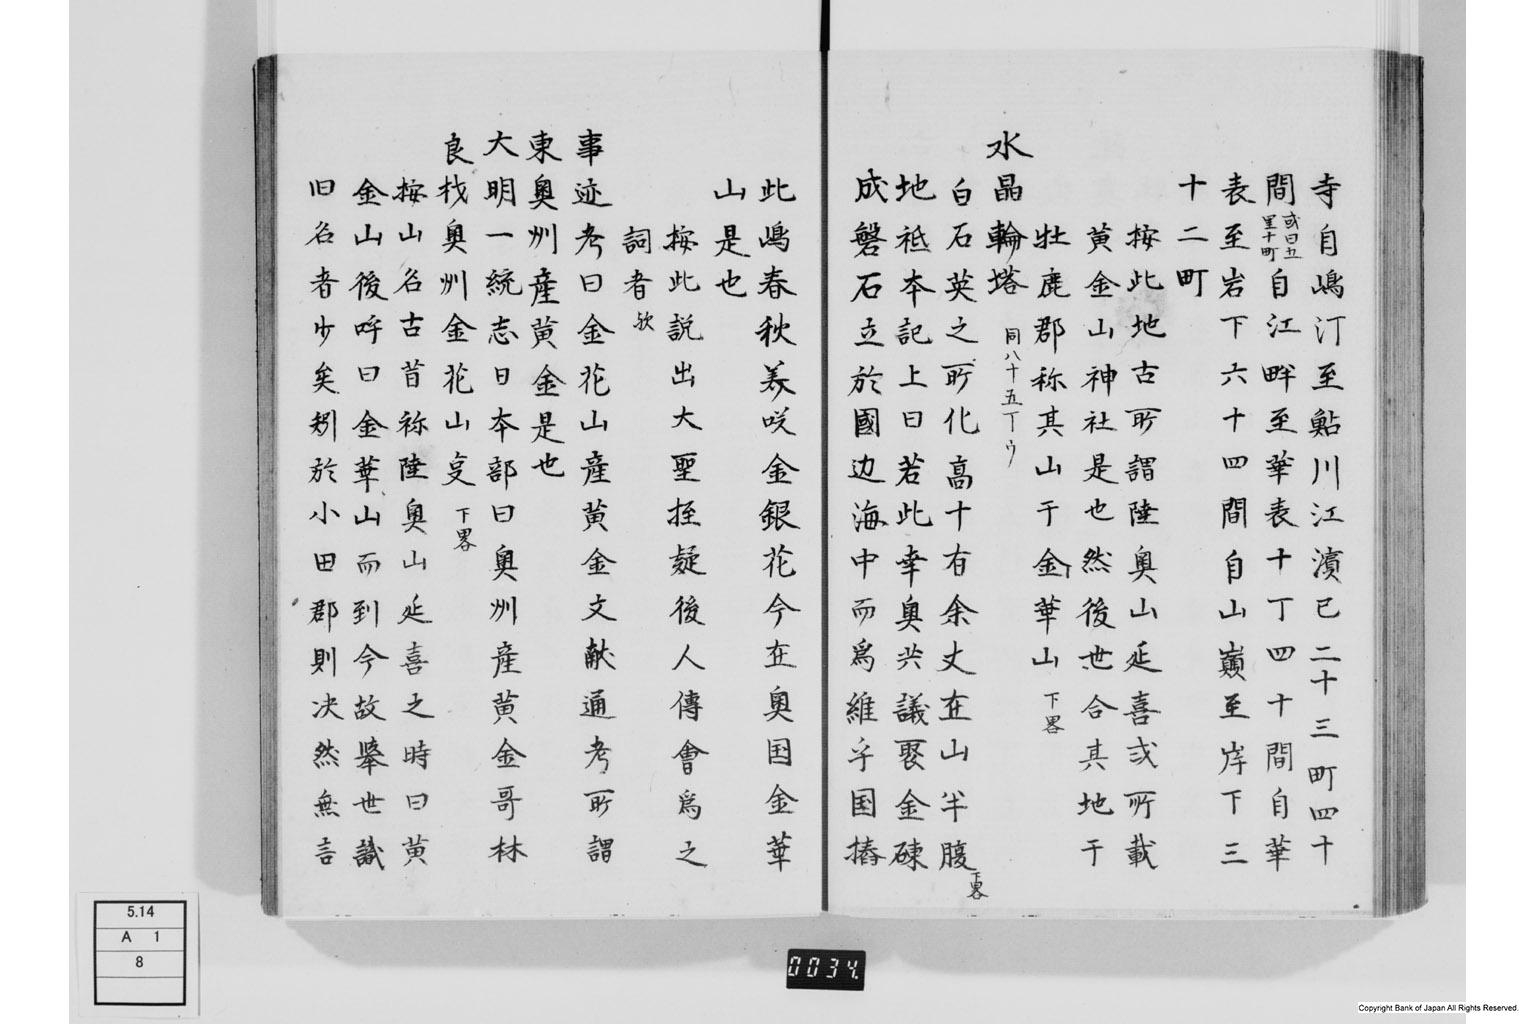 寺自嶋汀至鮎川江濵已二十三町四十
間或曰五里十町自江畔至華表十丁四十間自華
表至岩下六十四間自山巓至岸下三
十二町
按此地古所謂陸奥山延喜式所載
黄金山神社是也然後世合其地于
牡鹿郡称其山于金華山下畧
水晶輪塔同八十五丁ウ
白石英之所化高十有余丈在山半腹下畧
地祗本記上曰若此幸奥共議聚金礫
成磐石立於國边海中而爲維乎国椿
此嶋春秋美咲金銀花今在奥国金華
山是也
按此説出大聖挃疑後人傳會爲之
詞者欤
事迹考曰金花山産黄金文献通考所謂
東奥州産黄金是也
大明一統志日本部曰奥州産黄金哥林
良材奥州金花山叓下畧
按山名古昔称陸奥山延喜之時曰黄
金山後呼曰金華山而到今故挙世識
旧名者少矣矧於小田郡則决然無言
5.14
A 1
8
0034
Copyright Bank of Japan All Rights Reserved.